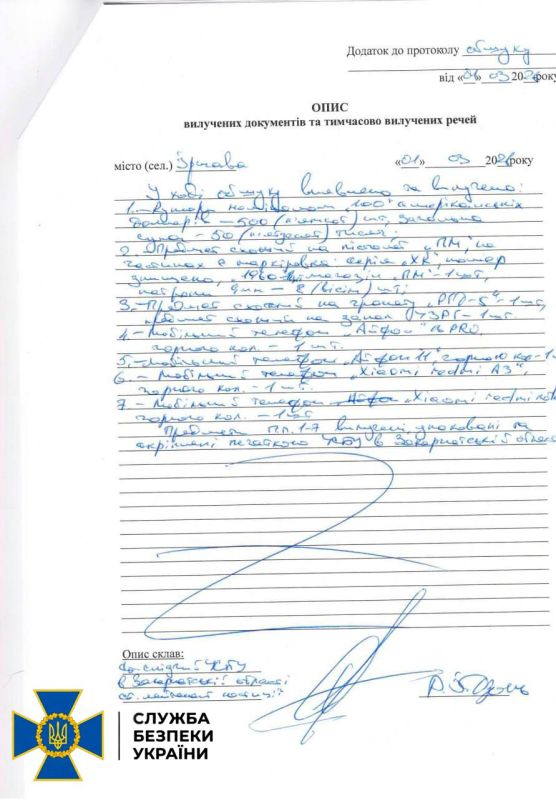 Додаток до протоколу обшуку
від « » 03 20 року
ОПИС
вилучених документів та тимчасово вилучених речей
місто (сел.) Іршава «01» 03 20 року
У ході обшуку виявлено та вилучено:
1. Купюри номіналом „100" американських
доларів – 500 (п'ятсот) шт, загальна
сума – 50 (п'ятдесят) тисяч;
2. Предмет схожий на пістолет „ПМ", на
частинах є маркіровка: серія „ХК", номер
знищено, магазин „ПМ" – 1 шт,
патрони 9мм – 8 (вісім) шт;
3. – Предмет схожий на гранату „РГД-5" – 1 шт,
предмет схожий на запал УЗРГ – 1 шт.
4. – Мобільний телефон „Айфон" PRO,
чорного кол. – 1 шт.
5. – Мобільний телефон „Айфон 11", чорного
6. – Мобільний телефон „Xiaomi redmi A3",
чорного кол. – 1 шт.
7. – Мобільний телефон „Xiaomi redmi
чорного кол. – 1 шт
Предмети п.п. 1-7 вилучені, упаковані та
скріплені печаткою в Закарпатській
Опис склав:
слідчий
в Закарпатській області
ст. лейтенант поліції
СЛУЖБА
БЕЗПЕКИ
УКРАЇНИ